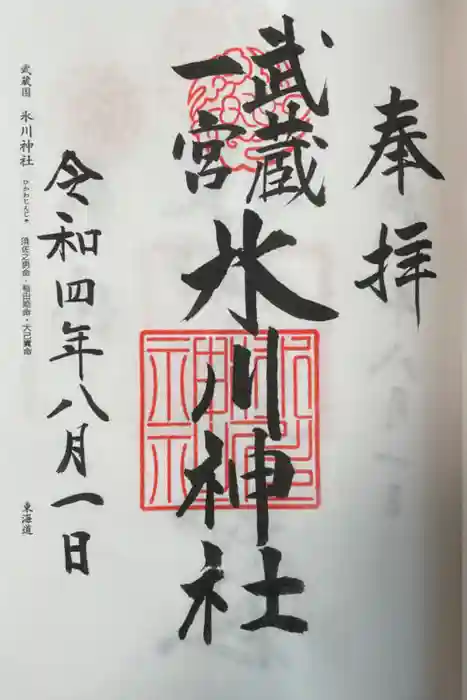 奉拝
武蔵
一宮
氷川神社
令和四年八月一日
武蔵国 氷川神社 ひかわじんじゃ 須佐之男命・稲田姫命・大己貴命 東海道